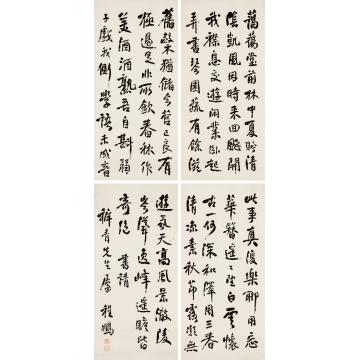 藹藹堂前林中夏貯清
陰凱風因時来回飈開
我襟息交遊閒業臥起
弄書琴園蔬有餘滋
舊榖猶儲今營己良有
極過足非所欽舂秫作
美酒酒熟吾自斟弱
子戲我側學語未成音
此事真復樂聊用忘
華簪遥遥望白雲懷
古一何深和澤周三春
清涼素秋節露凝無
遊氛天高風景澈陵
岑聳逸峰遥瞻皆
奇絶 書請
穉青先生屬 程